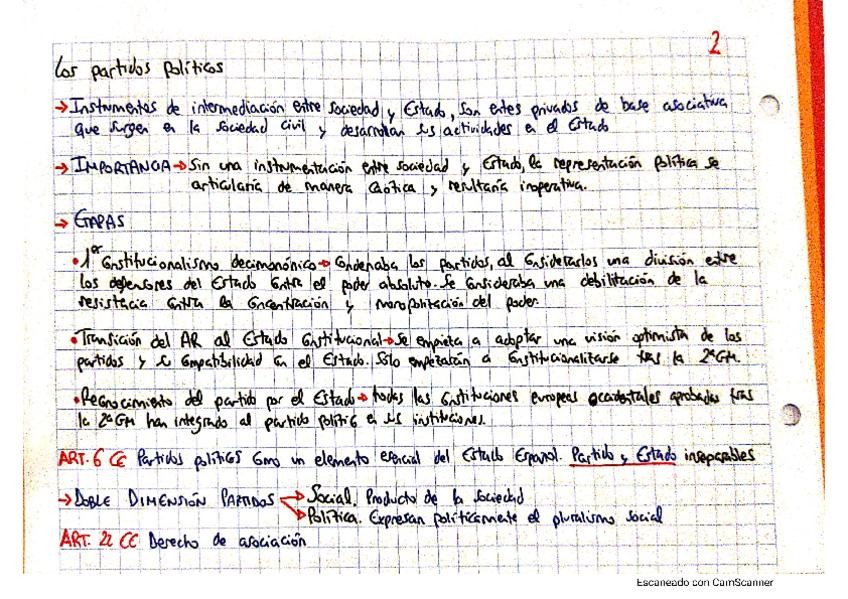 2
Los partidos políticos
→ Instrumentos de intermediación entre sociedad y Estado, son entes privados de base asociativa
que surgen en la sociedad civil y desarrollan sus actividades en el Estado
→ IMPORTANCIA → Sin una instrumentación entre sociedad y Estado, la representación política se
articularía de manera caótica y resultaría inoperativa.
→ ETAPAS
• 1er Constitucionalismo decimonónico → Condenaba los partidos, al considerarlos una división entre
los defensores del Estado contra el poder absoluto. Se consideraba una debilitación de la
resistencia contra la concentración y monopolización del poder.
• Transición del AR al Estado Constitucional → Se empieza a adoptar una visión optimista de los
partidos y su compatibilidad con el Estado. Sólo empezarán a constitucionalizarse tras la 2ªGM.
• Reconocimiento del partido por el Estado → todas las constituciones europeas occidentales aprobadas tras
la 2ªGM han integrado al partido político en sus instituciones.
ART. 6 CE Partidos políticos como un elemento esencial del Estado Español. Partido y Estado inseparables
→ DOBLE DIMENSIÓN PARTIDOS → Social. Producto de la sociedad
→ Política. Expresan políticamente el pluralismo social
ART. 22 CE Derecho de asociación
Escaneado con CamScanner